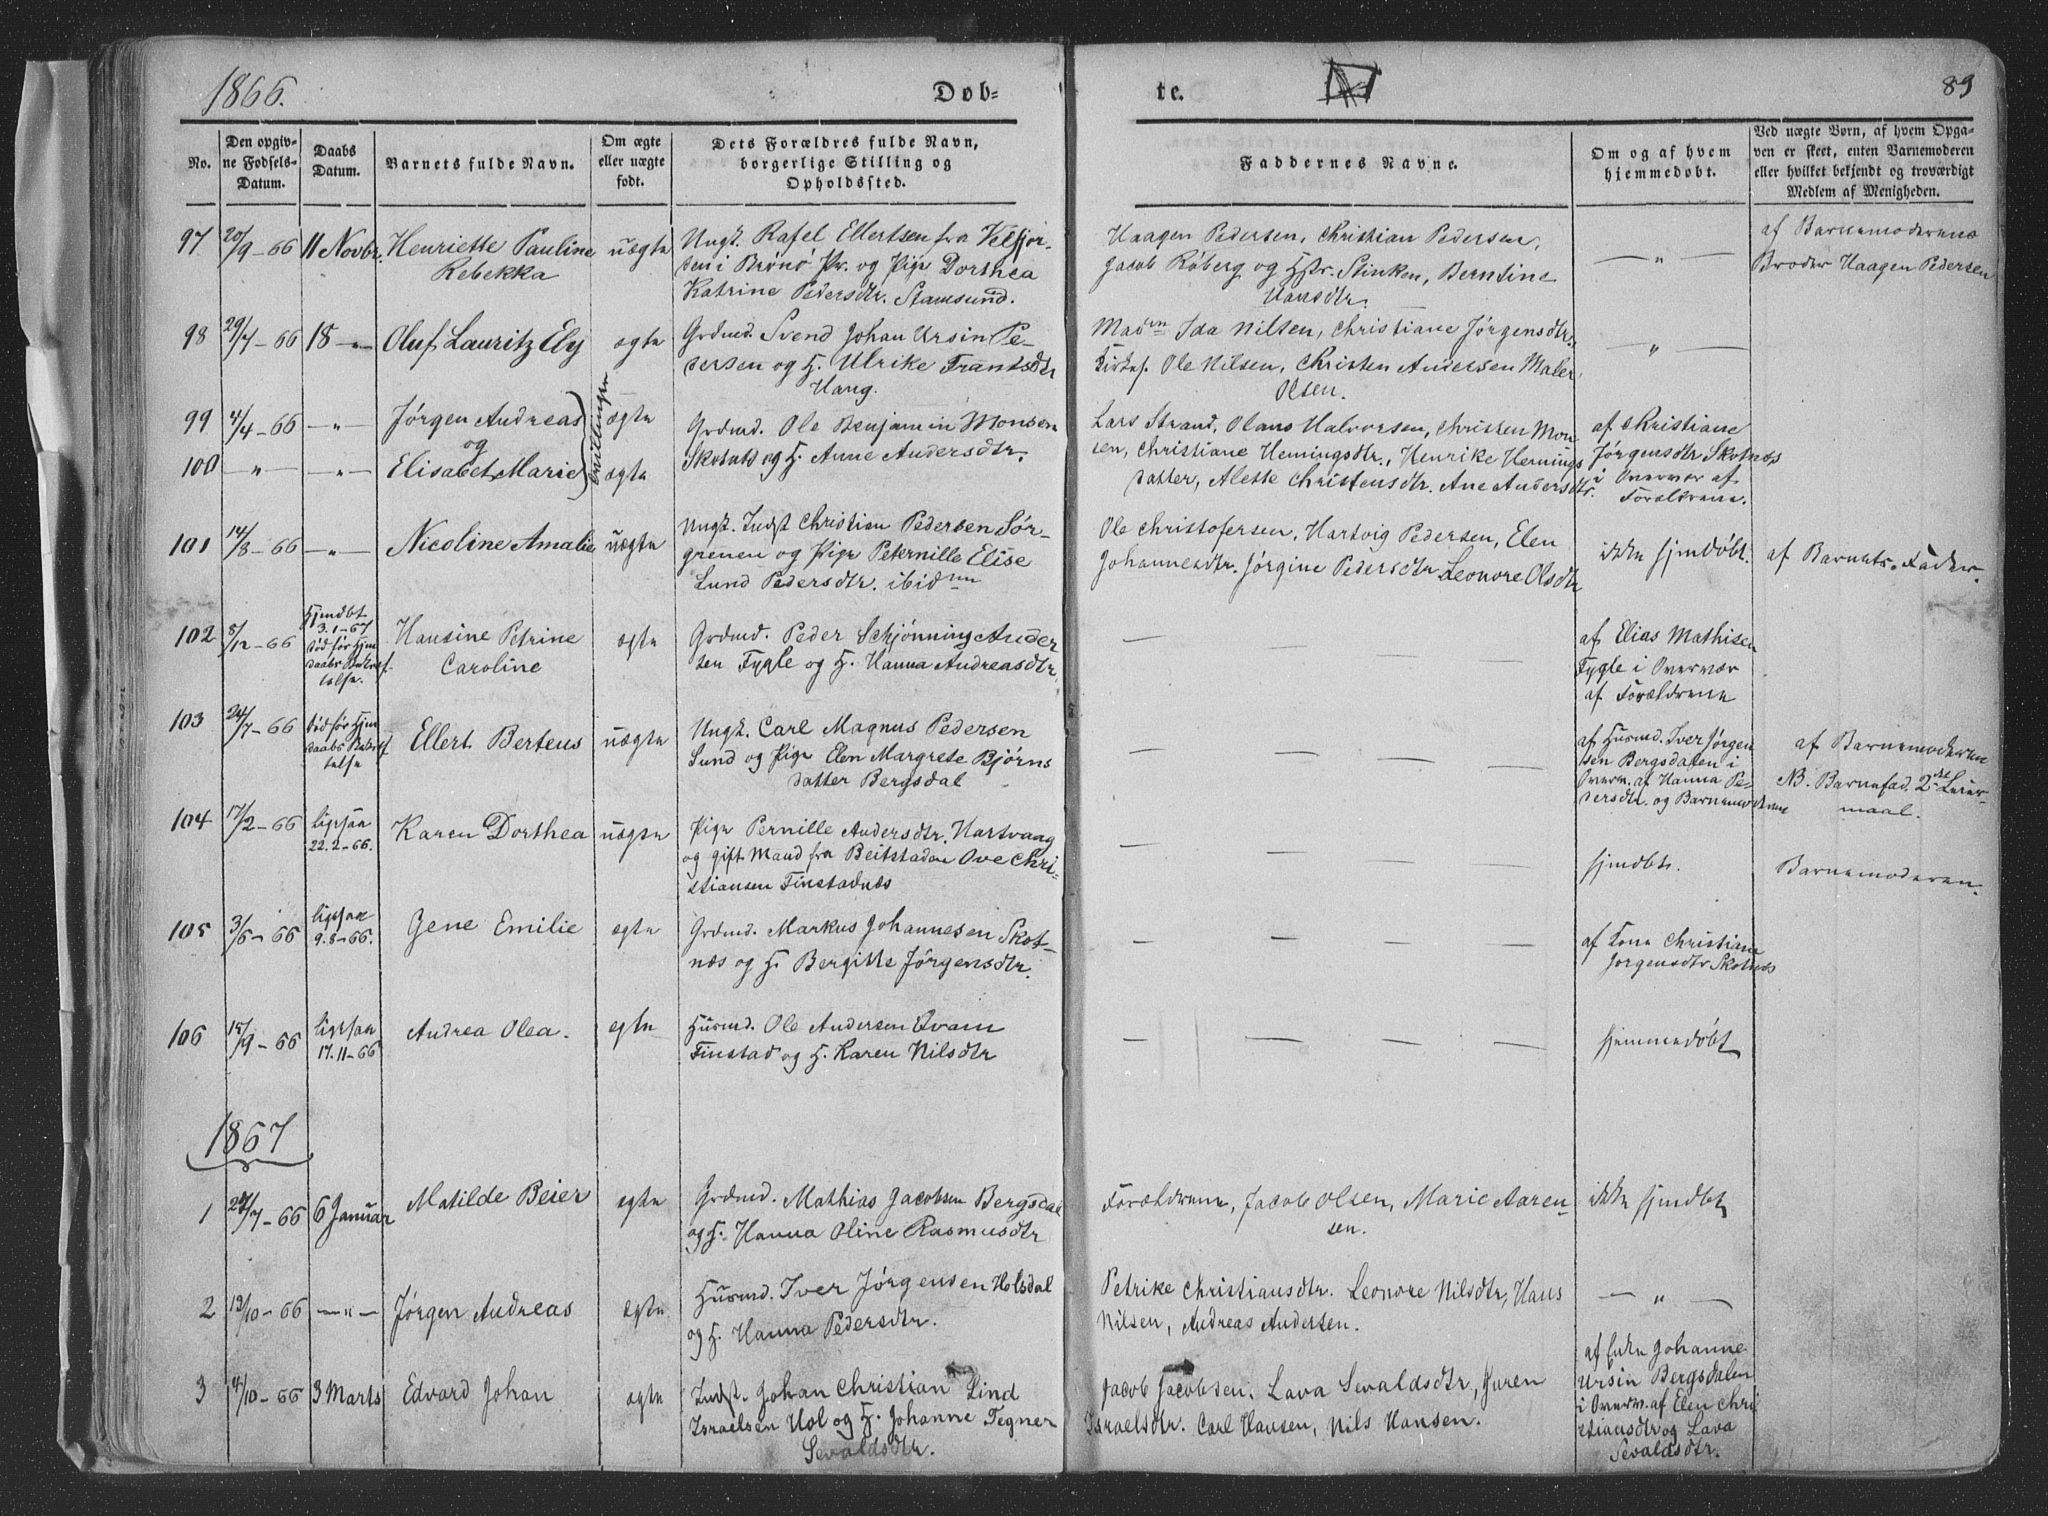 1866.
Døb-
te.
89
No.
Den opgiv-
ne Fødsels-
Datum.
Daabs
Datum.
Barnets fulde Navn.
Om ægte
eller uægte
født.
Dets Forældres fulde Navn,
borgerlige Stilling og
Opholdssted.
Faddernes Navne.
Om og af hvem
hjemmedøbt.
Ved uægte Børn, af hvem Opga-
ven er skeet, enten Barnemoderen
eller hvilket bekjendt og troværdigt
Medlem af Menigheden.
97 20/9-66 11 Novbr. Henriette Pauline
Rebekka
uægte
Ungk. Rafel Ellertsen fra Velfjor-
den i Brönö Pr. og Pige Dorthea
Katrine Pedersdtr. Stamsund.
Haagen Pedersen, Christian Pedersen,
Jacob Röberg og Hstr. Stinken, Berntine
Hansdtr.
— " —
af Barnemoderens
Broder Haagen Pedersen
98 29/7-66 18 -"- Oluf Lauritz Ely
ægte
Grdmd. Svend Johan Ursin Pe-
dersen og H. Ulrike Frantsdtr
Haug.
Madm Ida Nilsen, Christiane Jörgensdtr.
Kirkes. Ole Nilsen, Christen Andersen Maler
Olsen.
— " —
99 4/4-66 -"- Jørgen Andreas
og
tvillinger
ægte
Grdmd. Ole Benjamin Monsen
100 -"- -"- Elisabet Marie
ægte
Skotnæs og H. Anne Andersdtr.
Lars Strand, Olaus Halvorsen, Christen Mon-
sen, Christiane Hemingsdtr., Henrike Hemings
datter, Alette Christensdtr. Ane Andersdtr.
af Christiane
Jörgensdtr Skotnæs
i Overvær af
Forældrene.
101 14/8-66 -"- Nicoline Amalie
uægte
Ungk. Indst Christian Pedersen Sör-
grenen og Pige Peternille Elise
Lund Pedersdtr. ibidm
Ole Christofersen, Hartvig Pedersen, Elen
Johannesdtr. Jörgine Pedersdtr Leonore Olsdtr
ikke hjmdöbt.
af Barnets Fader.
102 8/12-66
Hjmdbt
3.1-67
död för Hjm
daabs Bekræf
telse.
Hansine Petrine
Caroline
ægte
Grdmd. Peder Schjönning Ander
sen Fygle og H. Hanna Andreasdtr.
— — — —
af Elias Mathisen
Fygle i Overvær
af Forældrene
103 24/7-66
död för Hjm
daabs Bekræf
telse
Ellert Berteus
uægte
Ungk. Carl Magnus Pedersen
Sund og Pige Elen Margrete Bjørns
datter Bergsdal
— — — —
af Husmd. Iver Jørgen
sen Bergsdalen i
Overv. af Hanna Pe-
dersdtr. og Barnemoderen
af Barnemoderen
NB. Barnefad. 2det Leier-
maal.
104 17/2-66
ligesaa
22.2-66.
Karen Dorthea
uægte
Pige Pernille Andersdtr. Hartvaag
og gift Mand fra Beitstaden Ove Chri-
stiansen Finstadnæs
— — — —
hjmdbt.
Barnemoderen.
105 3/6-66
ligesaa
9.8-66.
Gene Emilie
ægte
Grdmd. Markus Johannesen Skot-
næs og H. Bergitte Jörgensdtr.
— — — —
af Kone Christiane
Jorgensdtr Skotnæs
106 15/9-66
ligesaa
17.11-66
Andrea Olea.
egte
Husmd. Ole Andersen Qvam
Finstad og H. Karen Nilsdtr
— — — —
hjemmedöbt
1867
1 24/7-66 6 Januar Matilde Beier
egte
Grdmd. Mathias Jacobsen Bergsdal
og H. Hanna Oline Rasmusdtr
Forældrene, Jacob Olsen, Marie Aaren-
sen.
ikke hjmdbt
2 13/10-66 -"- Jørgen Andreas
ægte
Husmd. Iver Jørgensen Holsdal
og H. Hanna Pedersdtr.
Petrike Christiansdtr. Leonore Nilsdtr, Hans
Nilsen, Andreas Andersen.
— " —
3 4/10-66 3 Marts Edvard Johan
ægte
Indst. Johan Christian Lind
Israelsen Hol og H. Johanne Tegner
Sevaldsdtr.
Jacob Jacobsen. Lava Sevaldsdtr,
Israelsdtr. Carl Hansen, Nils Hansen.
af Enke Johanne
Ursin Bergsdalen
i Overv. af Elen Chri
stiansdtr og Lava
Sevaldsdtr.